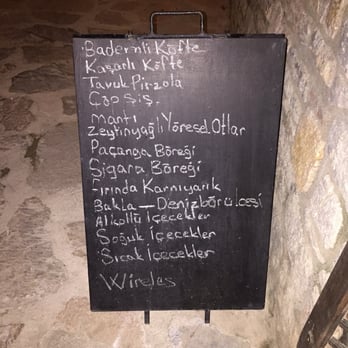 Bademli Köfte
Kaşarlı Köfte
Tavuk Pirzola
Çöp Şiş.
Mantı
Zeytinyağlı Yöresel Otlar
Paçanga Böreği
Sigara Böreği
Fırında Karnıyarık
Bakla — Denizbörülcesi
Alkollü İçecekler
Soğuk İçecekler
Sıcak İçecekler
Wireles